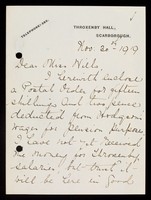 TELEPHONE: 597.
THROXENBY HALL,
SCARBOROUGH.
Nov. 20th 1919
Dear Miss Wills
I herewith enclose
a Postal Order for fifteen
shillings and two pence
deducted from Hodgson's
wages for Pension purposes
I have not yet received
the money for Throxenby
Salaries, but trust it
will be here in good